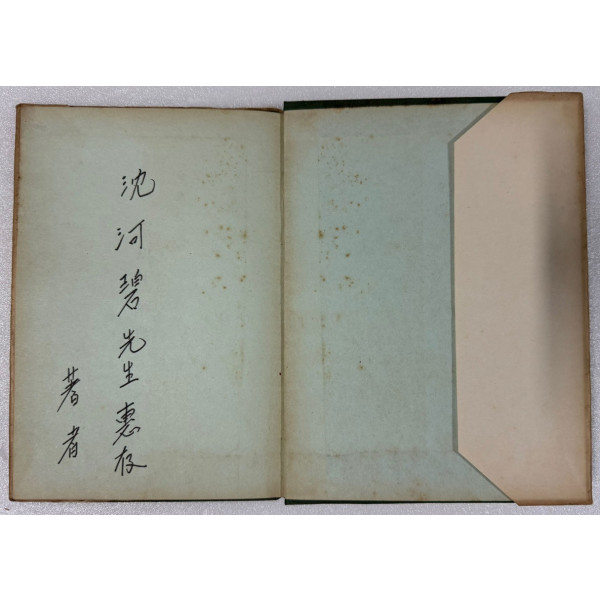 沈河碧先生惠存
著者